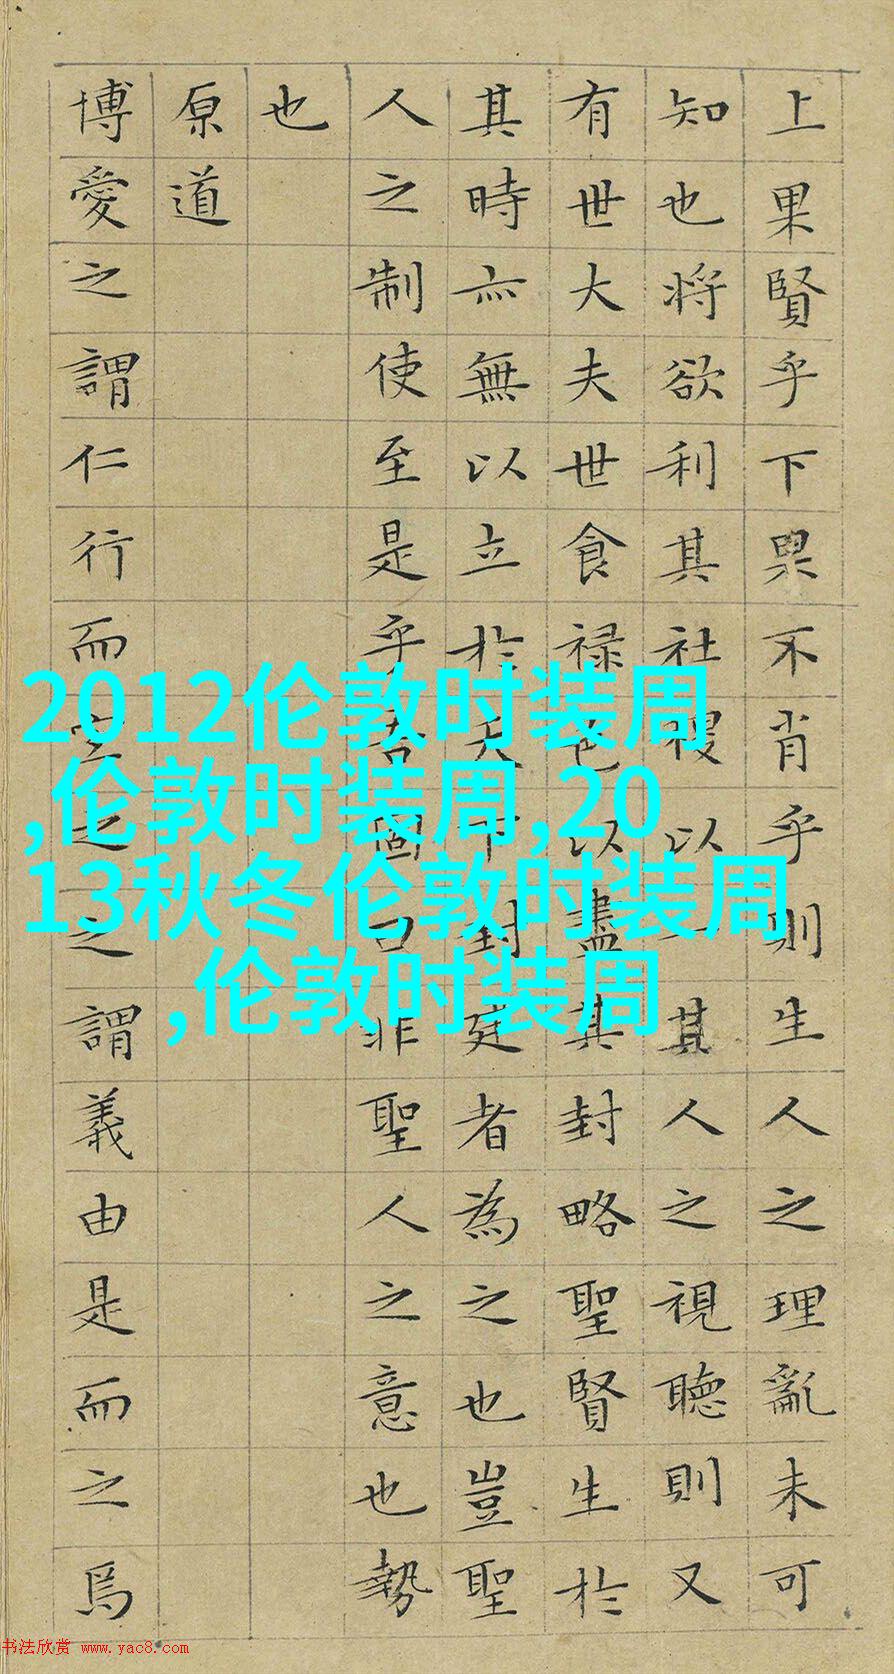 上果賢乎下果不肖乎則生人之理亂未可
知也将欲利其社稷以一其人之視聽則又
有世大夫世食禄邑以盡其封略聖賢生於
其時亦無以立於天下封建者為之也豈聖
人之制使至是乎吾固曰非聖人之意也勢
也
原道
博愛之謂仁行而宜之之謂義由是而之焉
2012伦敦时装周
,伦敦时装周,20
13秋冬伦敦时装周
,伦敦时装周
书法欣赏 www.yac8.com